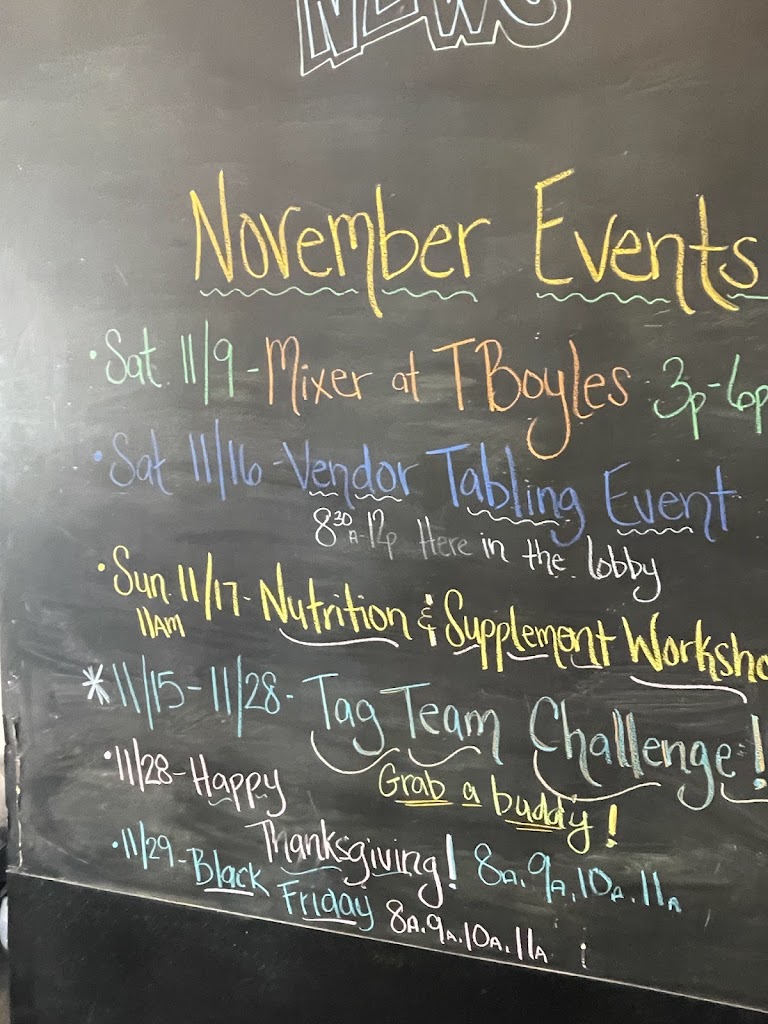 NEWS
November Events
• Sat 11/9 - Mixer at TBoyles 3p-6p
• Sat 11/16 - Vendor Tabling Event
8³⁰A-12p Here in the lobby
• Sun 11/17 - Nutrition & Supplement Worksho
11AM
* 11/15 - 11/28 - Tag Team Challenge!
Grab a buddy!
• 11/28 - Happy
Thanksgiving! 8A. 9A. 10A. 11A
• 11/29 - Black
Friday 8A. 9A. 10A. 11A